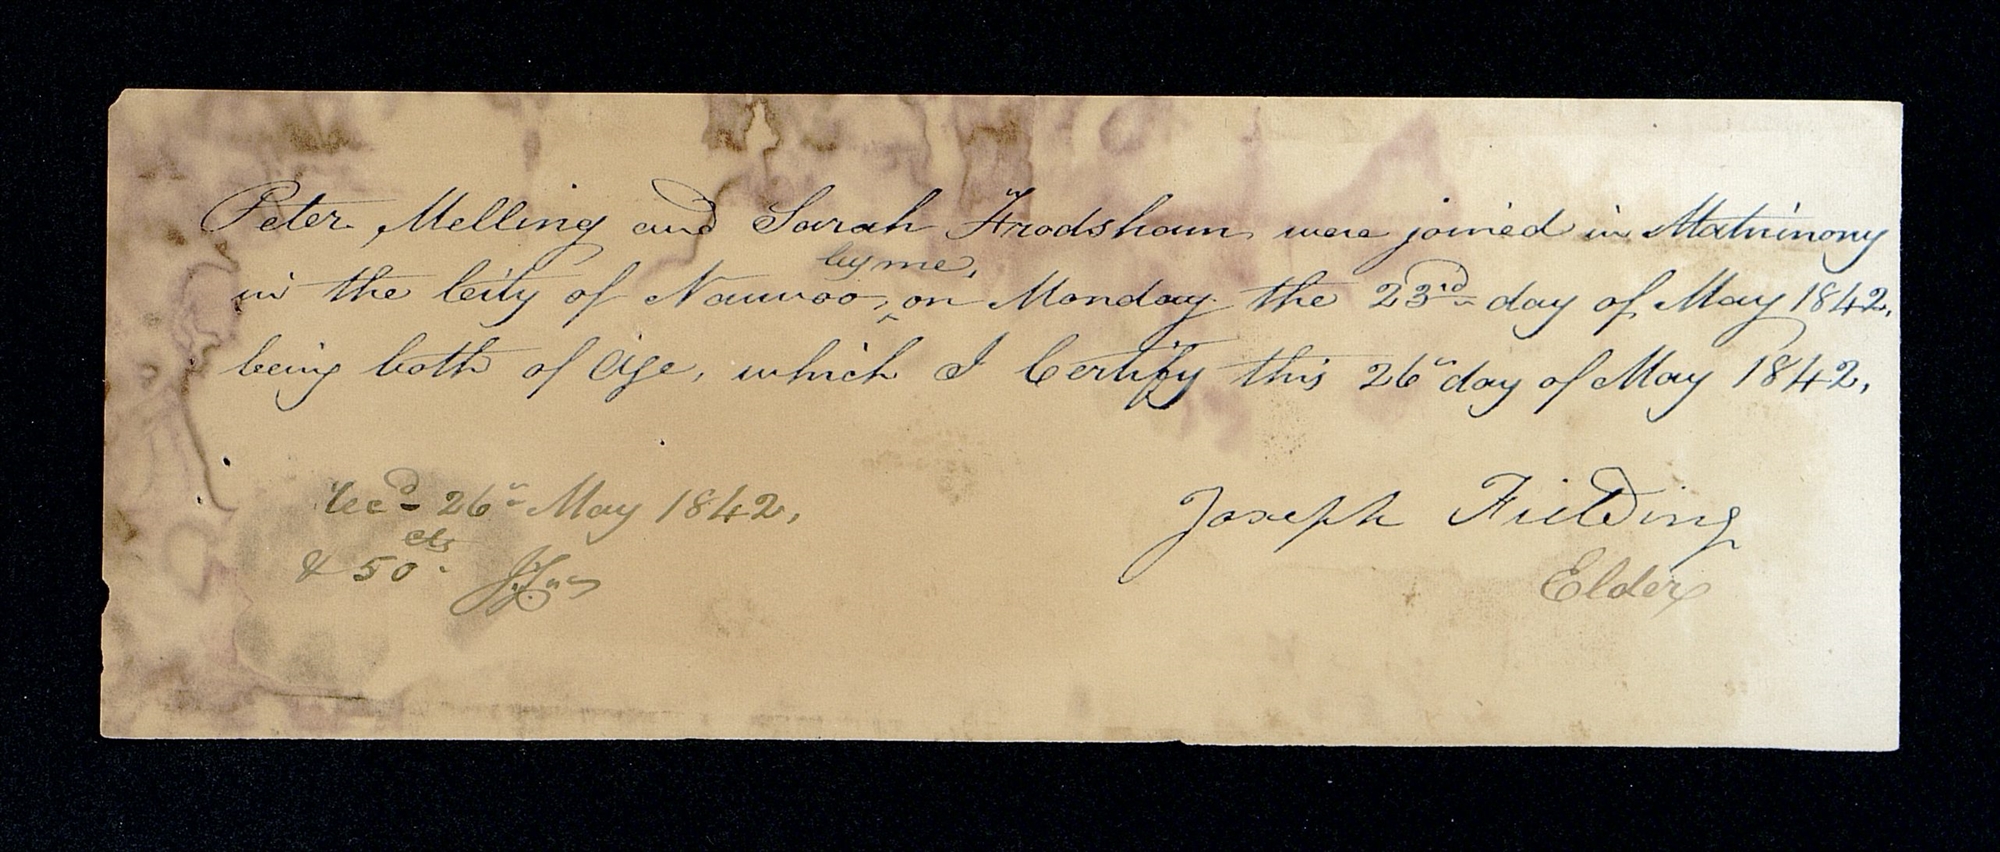 Peter Melling and Sarah Frodsham were joined in Matrimony
by me,
in the City of Nauvoo, ‸ on Monday the 23rd day of May 1842,
being both of Age, which I Certify this 26" day of May 1842,
Joseph Fielding
Elder
Recd 26" May 1842,
cts
& 50